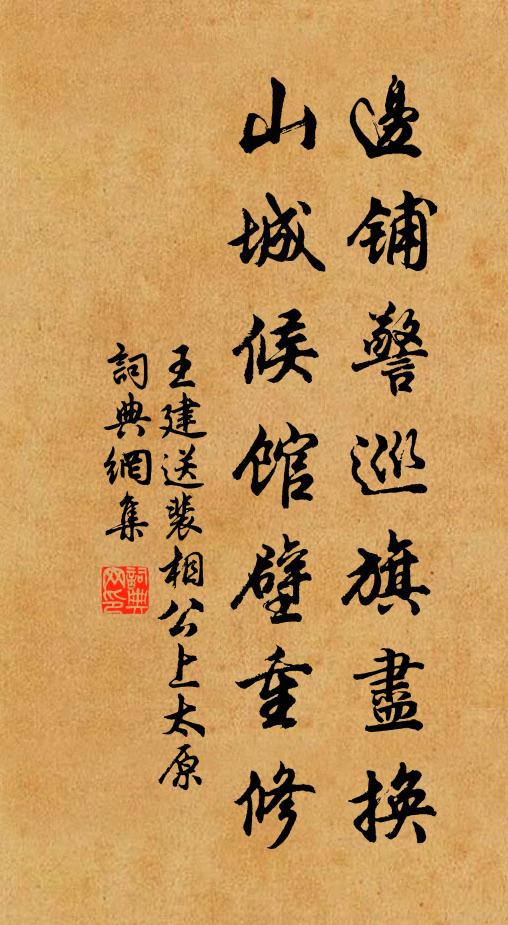 邊鋪警巡旗盡換
山城候館壁重修
王建送裴相公上太原
詞典網集
詞典
网印